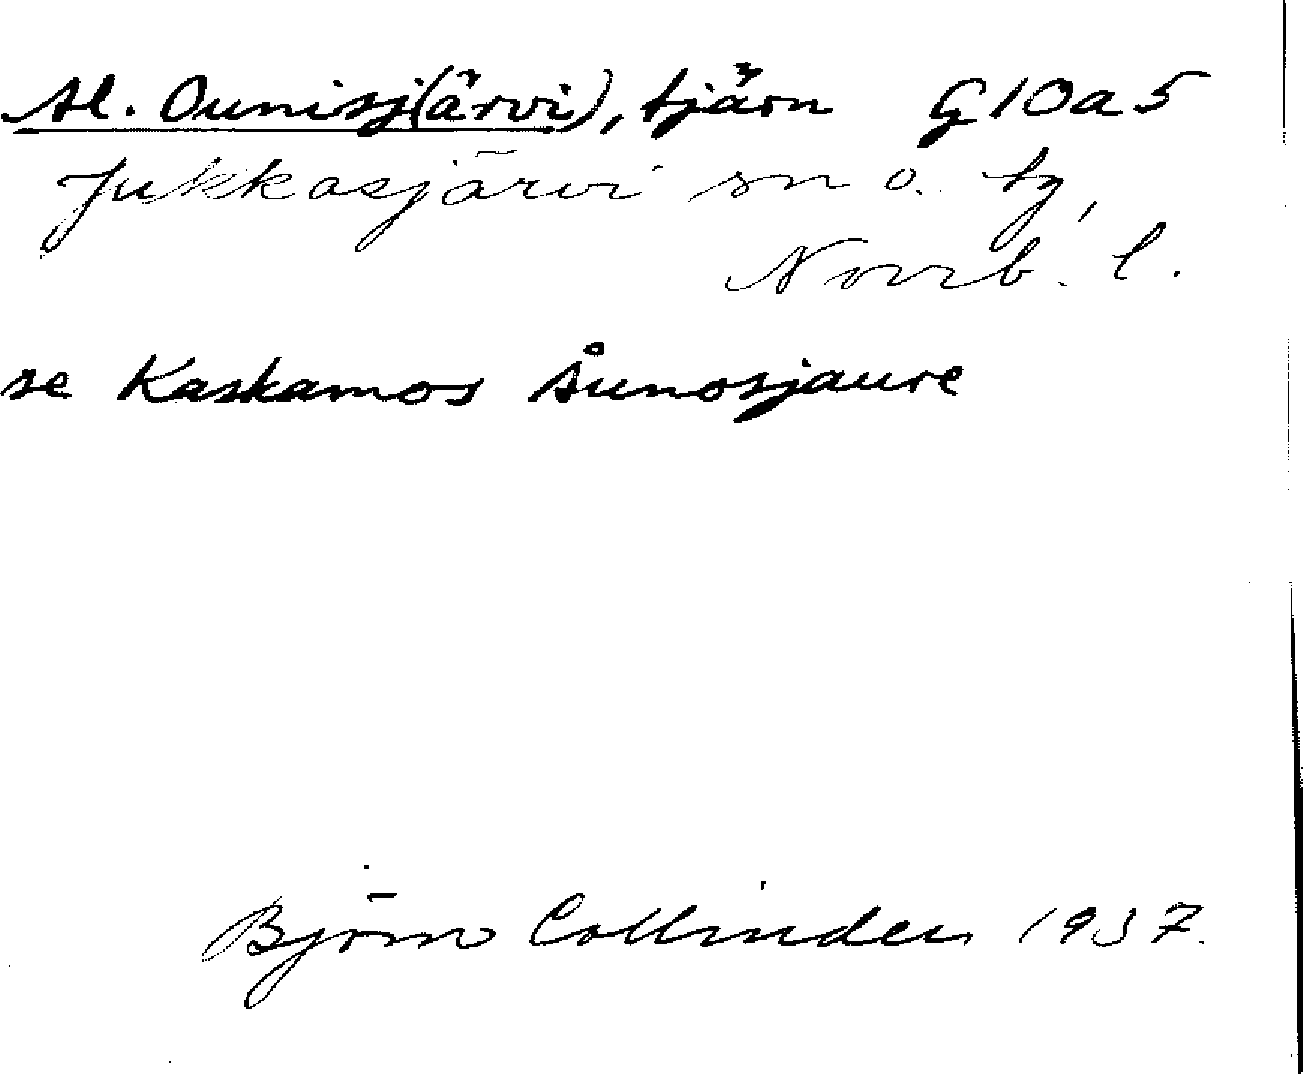 Al. Ounisj(ärvi), tjärn G10a5
Jukkasjärvi sn o. tg,
Norrb. l.
se Kaskamos Åunosjaure
Björn Collinder 1937.